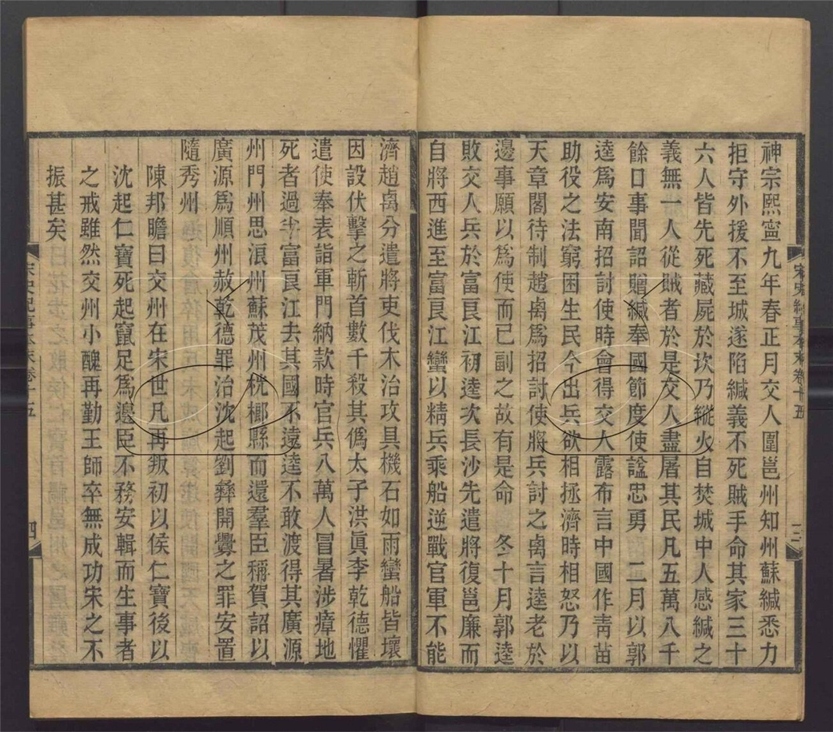 神宗熙寧九年春正月交人圍邕州知州蘇緘悉力
拒守外援不至城遂陷緘義不死賊手命其家三十
六人皆先死藏屍於坎乃縱火自焚城中人感緘之
義無一人從賊者於是交人盡屠其民凡五萬八千
餘口事聞詔贈緘奉國節度使諡忠勇 二月以郭
逵為安南招討使時會得交人露布言中國作靑苗
助役之法窮困生民今出兵欲相拯濟時相怒乃以
天章閣待制趙卨爲招討使將兵討之卨言逵老於
邊事願以爲使而已副之故有是命 冬十月郭逵
敗交人兵於富良江初逵次長沙先遣將復邕廉而
自將西進至富良江蠻以精兵乘船逆戰官軍不能
宋史紀事本末卷十五
三
濟趙卨分遣將吏伐木治攻具機石如雨蠻船皆壞
因設伏擊之斬首數千殺其僞太子洪眞李乾德懼
遣使奉表詣軍門納款時官兵八萬人冒暑涉瘴地
死者過半富良江去其國不遠逵不敢渡得其廣源
州門州思浪州蘇茂州桄榔縣而還羣臣稱賀詔以
廣源爲順州赦乾德罪治沈起劉彝開釁之罪安置
隨秀州
陳邦瞻曰交州在宋世凡再叛初以侯仁寶後以
沈起仁寶死起竄足爲邊臣不務安輯而生事者
之戒雖然交州小醜再勤王師卒無成功宋之不
振甚矣
宋史紀事本末卷十五
四